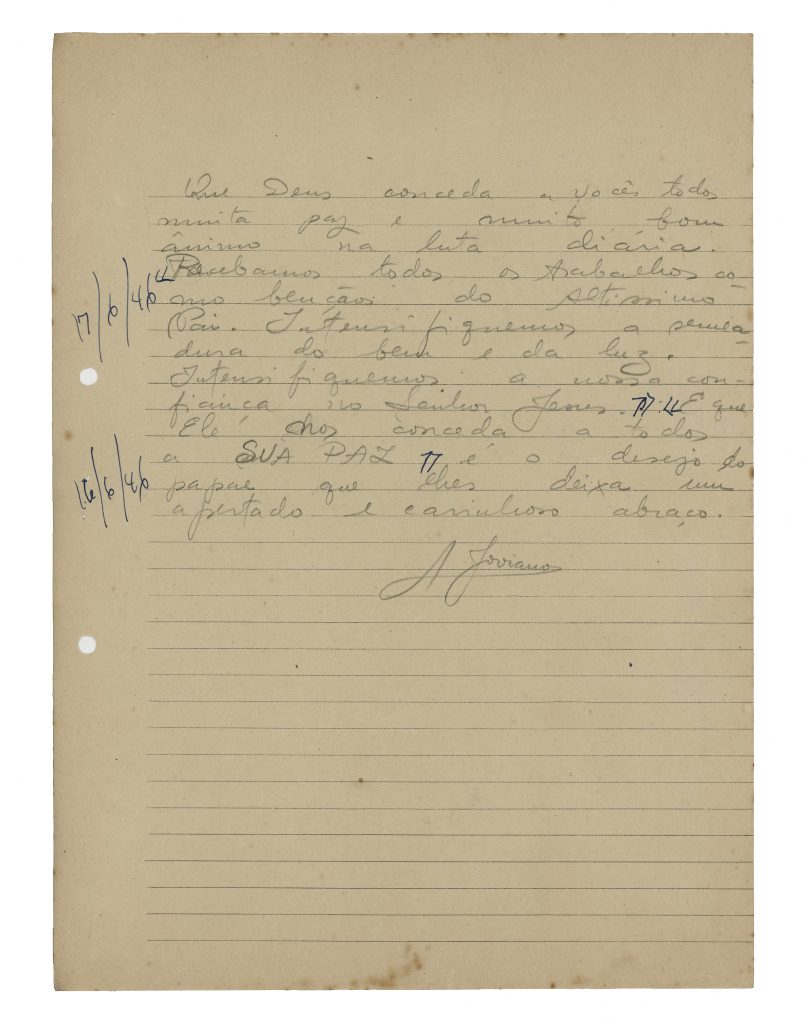 Que Deus conceda a vocês todos
muita paz e muito bom
ânimo na luta diária.
Recebamos todos os trabalhos co-
mo bençãos do Altissimo
Pai. Intensifiquemos a semea-
dura do bem e da luz.
Intensifiquemos a nossa con-
fiança no Senhor Jesus. E que
Ele nos conceda a todos
a SUA PAZ é o desejo do
papae que lhes deixa um
apertado e carinhoso abraço.
A Joviano
17/6/46
16/6/46